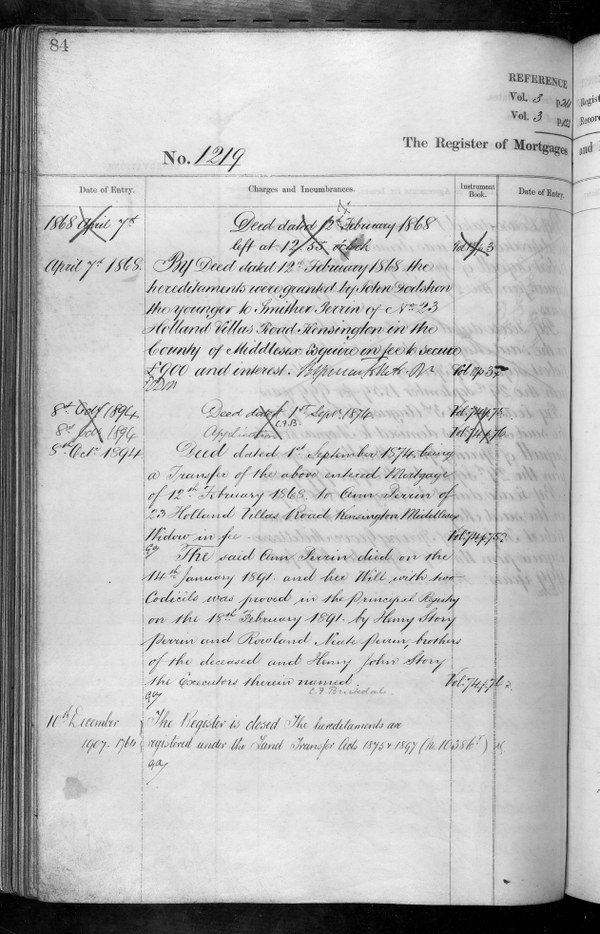 84
REFERENCE
Vol. 3 p 261
Vol. 3 p 122
The Register of Mortgages
No. 1219
Date of Entry.
Charges and Incumbrances.
Instrument Book.
Date of Entry.
1868 April 7th
Deed dated 12th February 1868
left at 12/55 o'clock
April 7th 1868.
By Deed dated 12th February 1868 the
hereditaments were granted by John Dodshon
the younger to Smither Perrin of No 23
Holland Villas Road Kensington in the
County of Middlesex Esquire in fee to secure
£900 and interest.
8th Octr 1894
Deed dated 1st Septr 1874
Vol. 74 p 75
8th Octr 1894
Application
C.F.B.
Vol. 74 p 76
8th Octr 1894
Deed dated 1st September 1874 being
a Transfer of the above entered Mortgage
of 12th February 1868 to Ann Perrin of
23 Holland Villas Road Kensington Middlesex
Widow in fee
Vol. 74 p 75
The said Ann Perrin died on the
14th January 1891 and her Will with two
Codicils was proved in the Principal Registry
on the 18th February 1891 by Henry Story
Perrin and Rowland Neate Perrin, brothers
of the deceased and Henry John Story
the Executors therein named
Vol. 74 p 76
10th December
1907.
The Register is closed The hereditaments are
registered under the Land Transfer Acts 1875 & 1897 (No. 103861)
Regist
Record
and